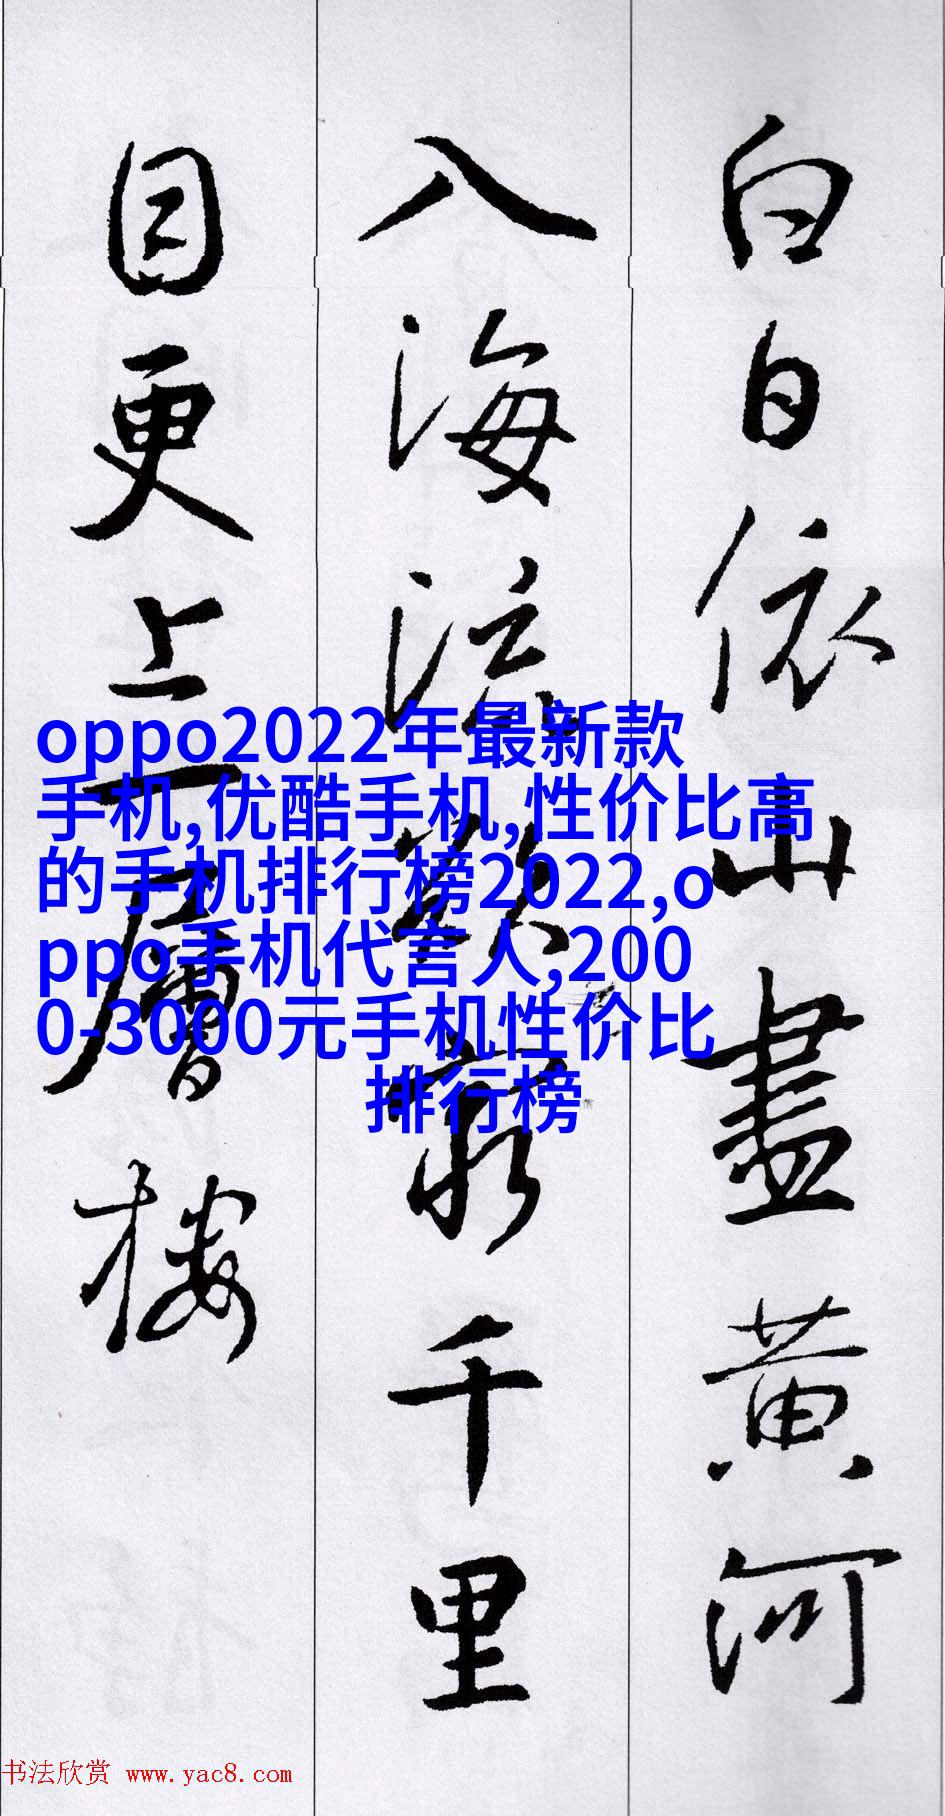 白日依山盡黄河
入海流欲窮千里
目更上一層樓
oppo2022年最新款
手机,优酷手机,性价比高
的手机排行榜2022,o
ppo手机代言人,200
0-3000元手机性价比
排行榜
书法欣赏 www.yac8.com